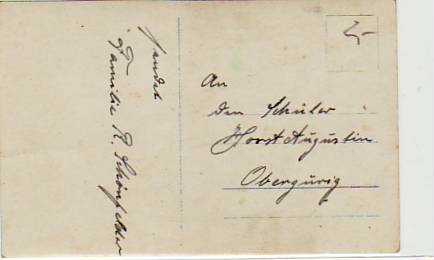 sendet
Familie R. Schönfelder
An
den Schüler
Horst Augustin
Obergurig